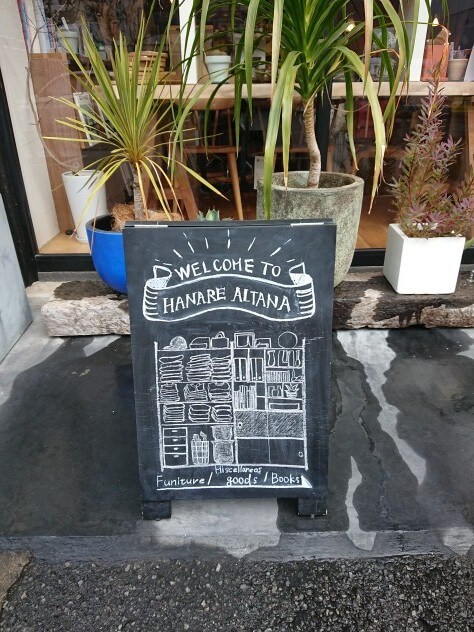 WELCOME TO
HANARE ALTANA
Miscellaneas
Funiture / goods / Books